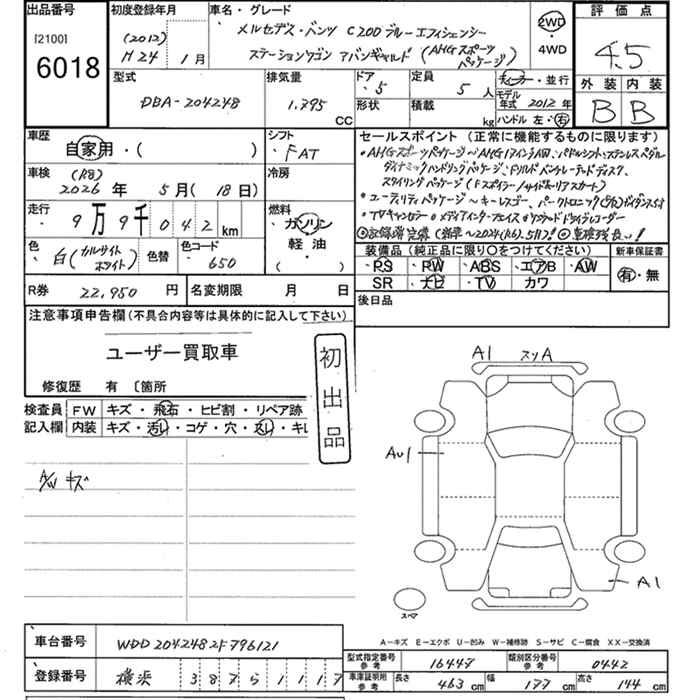 出品番号
[2100]
6018
初度登録年月
(2012)
H24年 1月
車名・グレード
メルセデス・ベンツ C200 ブルーエフィシェンシー
ステーションワゴン アバンギャルド (AMGスポーツパッケージ)
2WD
・
4WD
評価点
4.5
外装 内装
B B
型式
DBA-204248
排気量
1.795 CC
ドア
・5
形状
定員
5人
積載
kg
ディーラー・並行
モデル年式 2012年
ハンドル 左・右
車歴
自家用・( )
シフト
・FAT
車検
(R8)
2026年 5月 (18日)
冷房
走行
9万9千042km
燃料
ガソリン
軽油
( )
色
白(カルサイトホワイト)
色替
色コード
・650
R券 22,950円
名変期限 月 日
セールスポイント (正常に機能するものに限ります)
・AMGスポーツパッケージ〜AMG17インチAW、パドルシフト、ステンレスペダル
ダイナミックハンドリングパッケージ、ドリルドベンチレーテッドディスク、
スタイリングパッケージ(Fスポイラー/サイド&リアスカート)
・ユーティリティパッケージ〜キーレスゴー、パークトロニック
・TVキャンセラー ・メディアインターフェイス ・ドライブレコーダー
装備品 (純正品に限り○をつけてください)
PS PW ABS エアB AW
SR ナビ TV カワ
新車保証書
有・無
後日品
注意事項申告欄(不具合内容等は具体的に記入して下さい)
ユーザー買取車
修復歴 有 〔箇所
初出品
検査員記入欄
FW キズ・飛石・ヒビ割・リペア跡
内装 キズ・汚レ・コゲ・穴・スレ・キレ
A/W キズ
A1 スリA
AU1
A1
スマ
A－キズ E－エクボ U－凹み W－補修跡 S－サビ C－腐食 XX－交換済
車台番号 WDD2042482F796121
登録番号 横浜 387 ら 1117
型式指定番号 参考 16447
類別区分番号 参考 0442
車庫証明用 参考 長さ 463cm 幅 177cm 高さ 144cm